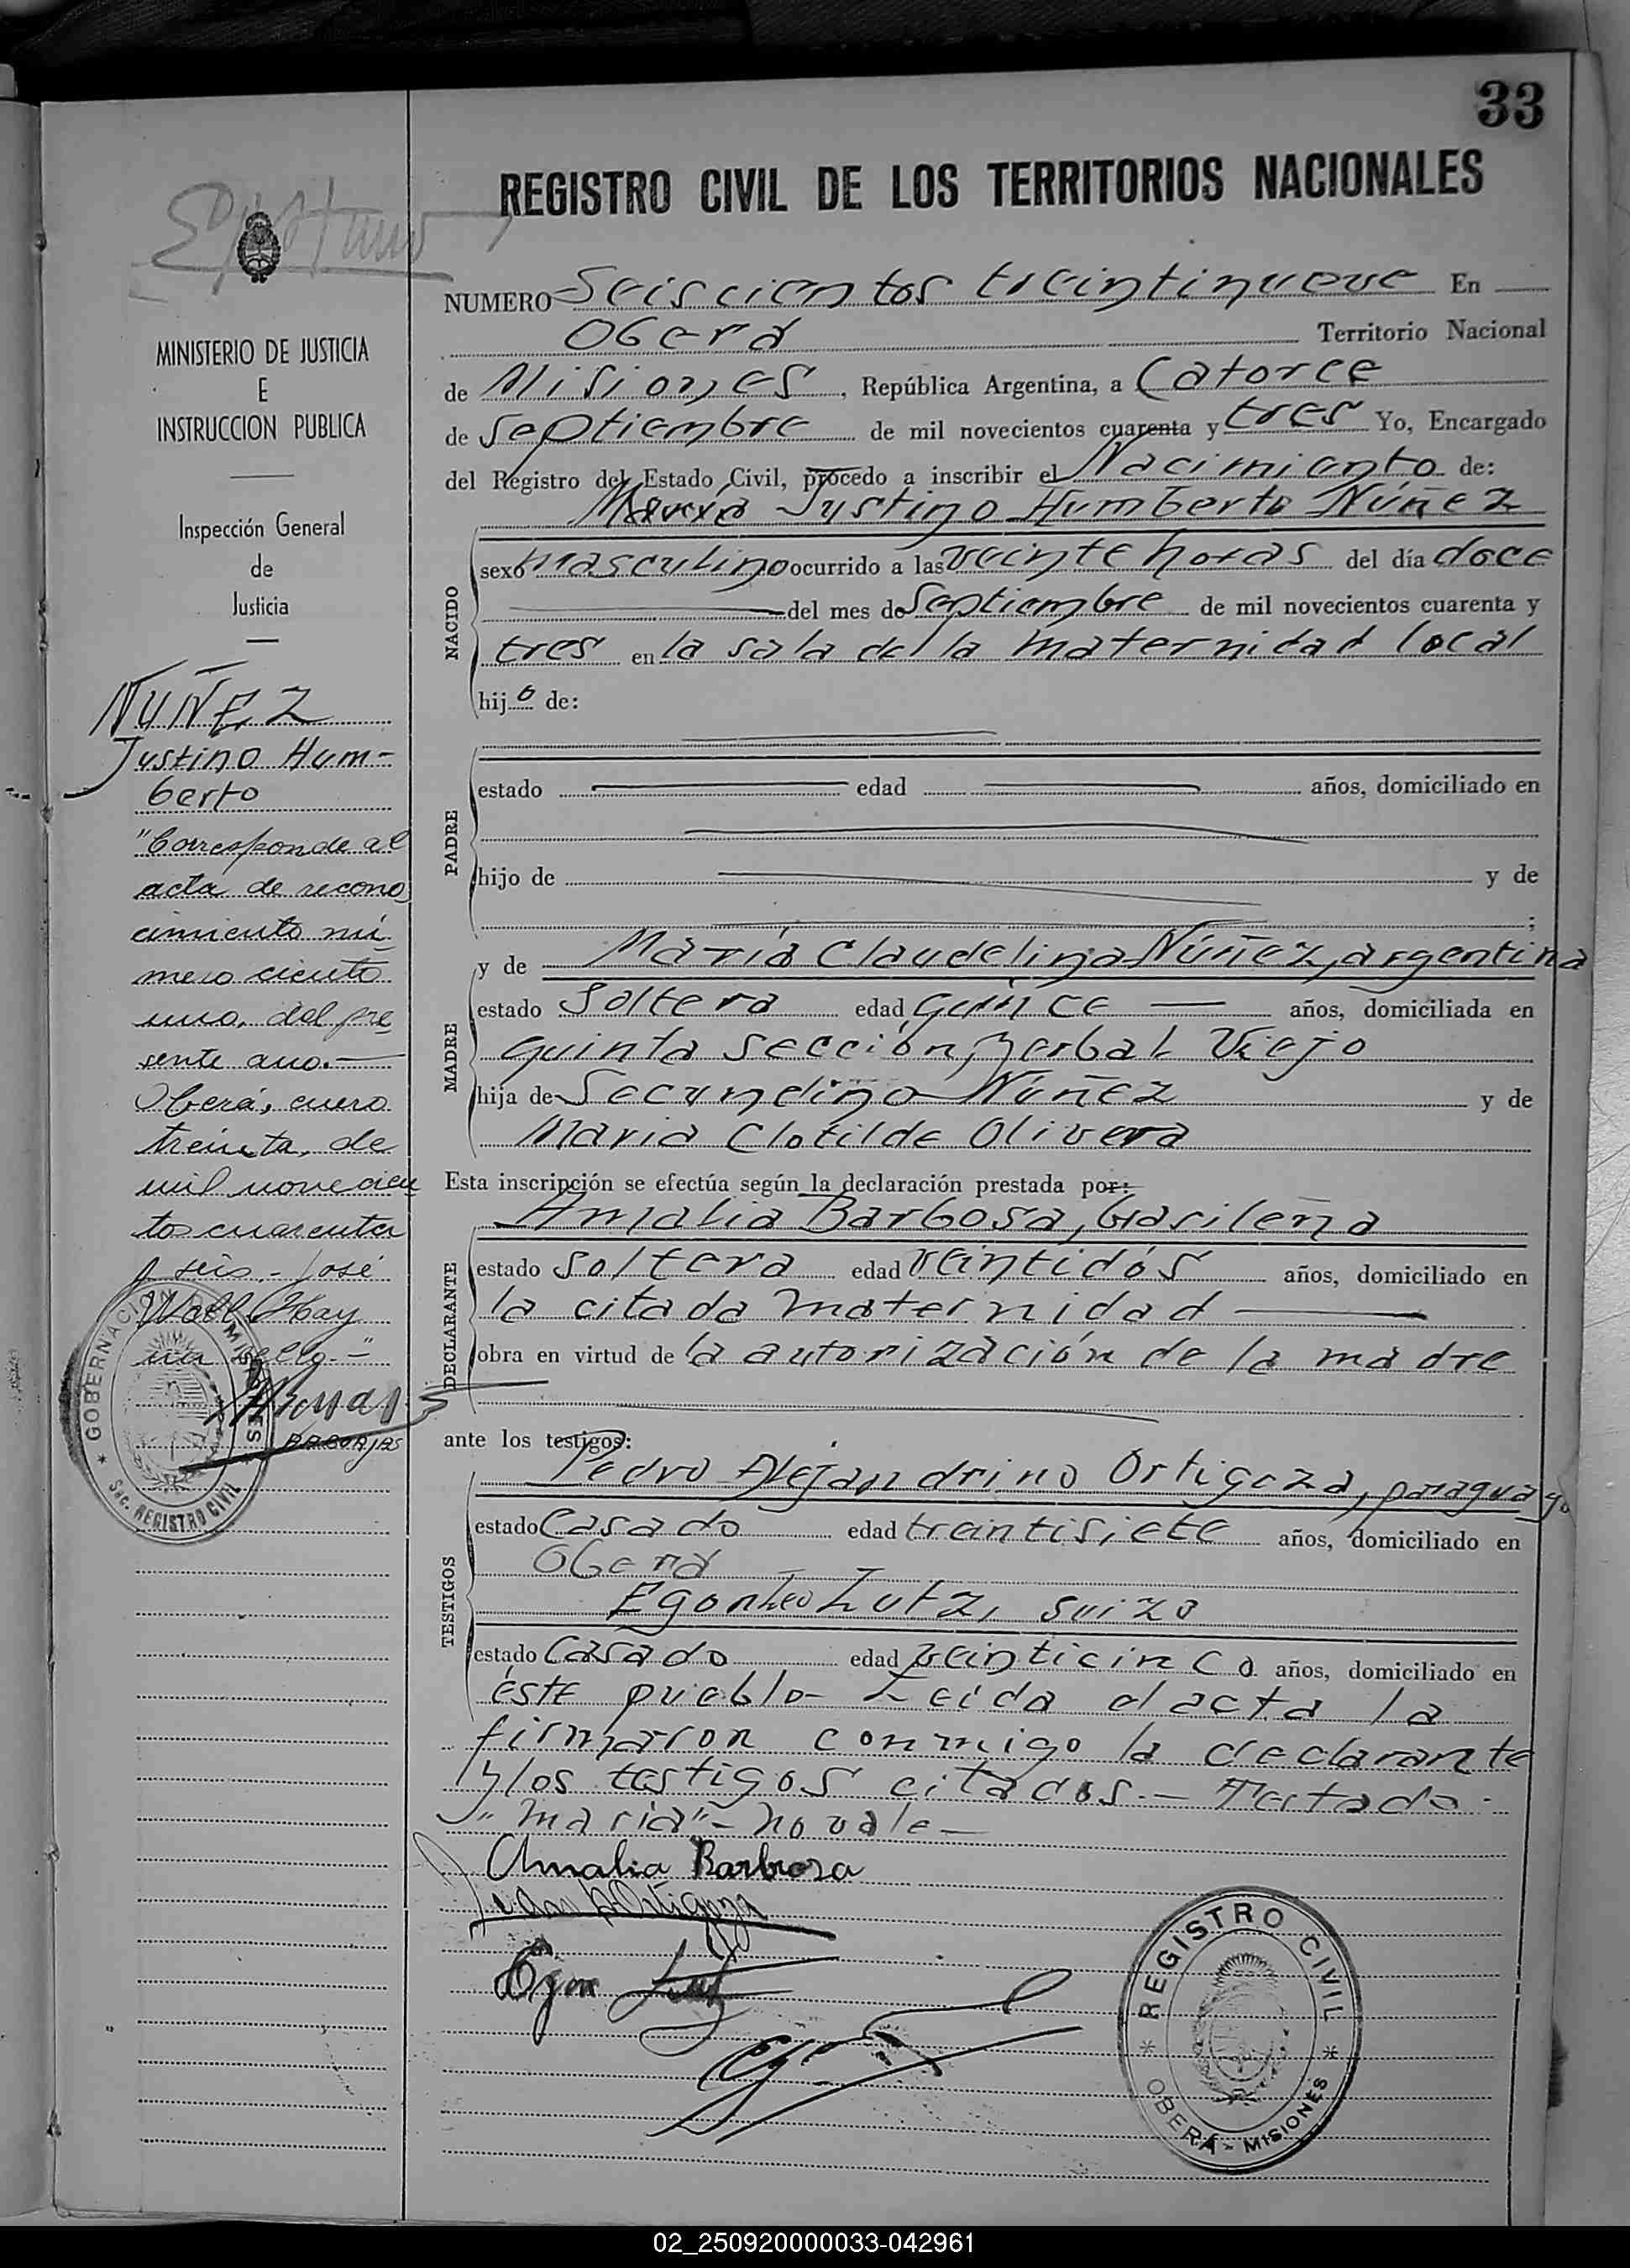 33
REGISTRO CIVIL DE LOS TERRITORIOS NACIONALES
MINISTERIO DE JUSTICIA
E
INSTRUCCION PUBLICA
Inspección General
de
Justicia
NUÑEZ
Justino Hum-
berto
"Corresponde al
acta de recono
cimiento nú
mero ciento
uno, del pre
sente año.-
Oberá, enero
treinta, de
mil novecien
tos cuarenta
y seis.- José
GOBERNACION MISIONES
Sec. REGISTRO CIVIL
NUMERO Seiscientos treintinueve En
Oberá Territorio Nacional
de Misiones, República Argentina, a Catorce
de Septiembre de mil novecientos cuarenta y tres Yo, Encargado
del Registro del Estado Civil, procedo a inscribir el Nacimiento de:
María Justino Humberto Núñez
NACIDO
sexo masculino ocurrido a las veinte horas del día doce
del mes de Septiembre de mil novecientos cuarenta y
tres en la sala de la maternidad local
hijo de:
PADRE
estado edad años, domiciliado en
hijo de y de
;
MADRE
y de María Claudelina Núñez, argentina
estado Soltera edad quince años, domiciliada en
quinta sección, Yerbal Viejo
hija de Secundino Núñez y de
María Clotilde Olivera
Esta inscripción se efectúa según la declaración prestada por:
DECLARANTE
Amalia Barbosa, brasileña
estado soltera edad veintidós años, domiciliado en
la citada maternidad
obra en virtud de la autorización de la madre
ante los testigos:
TESTIGOS
Pedro Alejandrino Ortigoza, paraguayo
estado Casado edad treintisiete años, domiciliado en
Oberá
Egon Leo Lutz, suizo
estado Casado edad veinticinco años, domiciliado en
éste pueblo- Leida el acta la
firmaron conmigo la declarante
y los testigos citados.- Testado
"maría"- no vale-
Amalia Barbosa
Egon Lutz
REGISTRO CIVIL
OBERÁ - MISIONES
02_250920000033-042961